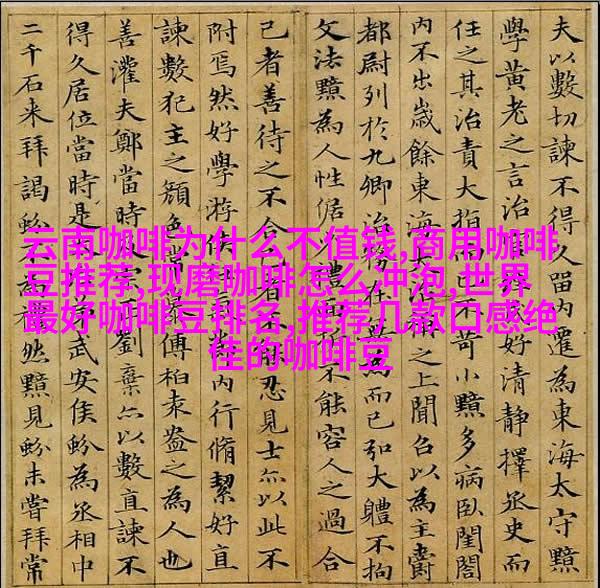 夫以數切諫不得久留內遷為東海太守黯
學黃老之言治好清靜擇丞史而
任之其治責大指而已不苛小黯多病臥閨閤
內不出歲餘東海大稱之上聞召以為主爵
都尉列於九卿治務在為而已弘大體不拘
文法黯為人性倨面不能容人之過合
己者善待之不合己者不忍見士亦以此不
附焉然好學游俠內行脩絜好直
諫數犯主之顏色常慕傅柏袁盎之為人也
善灌夫鄭當時正劉棄亦以數直諫不
得久居位當時是武安侯蚡為丞相中
二千石來拜謁蚡不禮然黯見蚡未嘗拜常
云南咖啡为什么不值钱,商用咖啡
豆推荐,现磨咖啡怎么冲泡,世界
最好咖啡豆排名,推荐几款口感绝
佳的咖啡豆